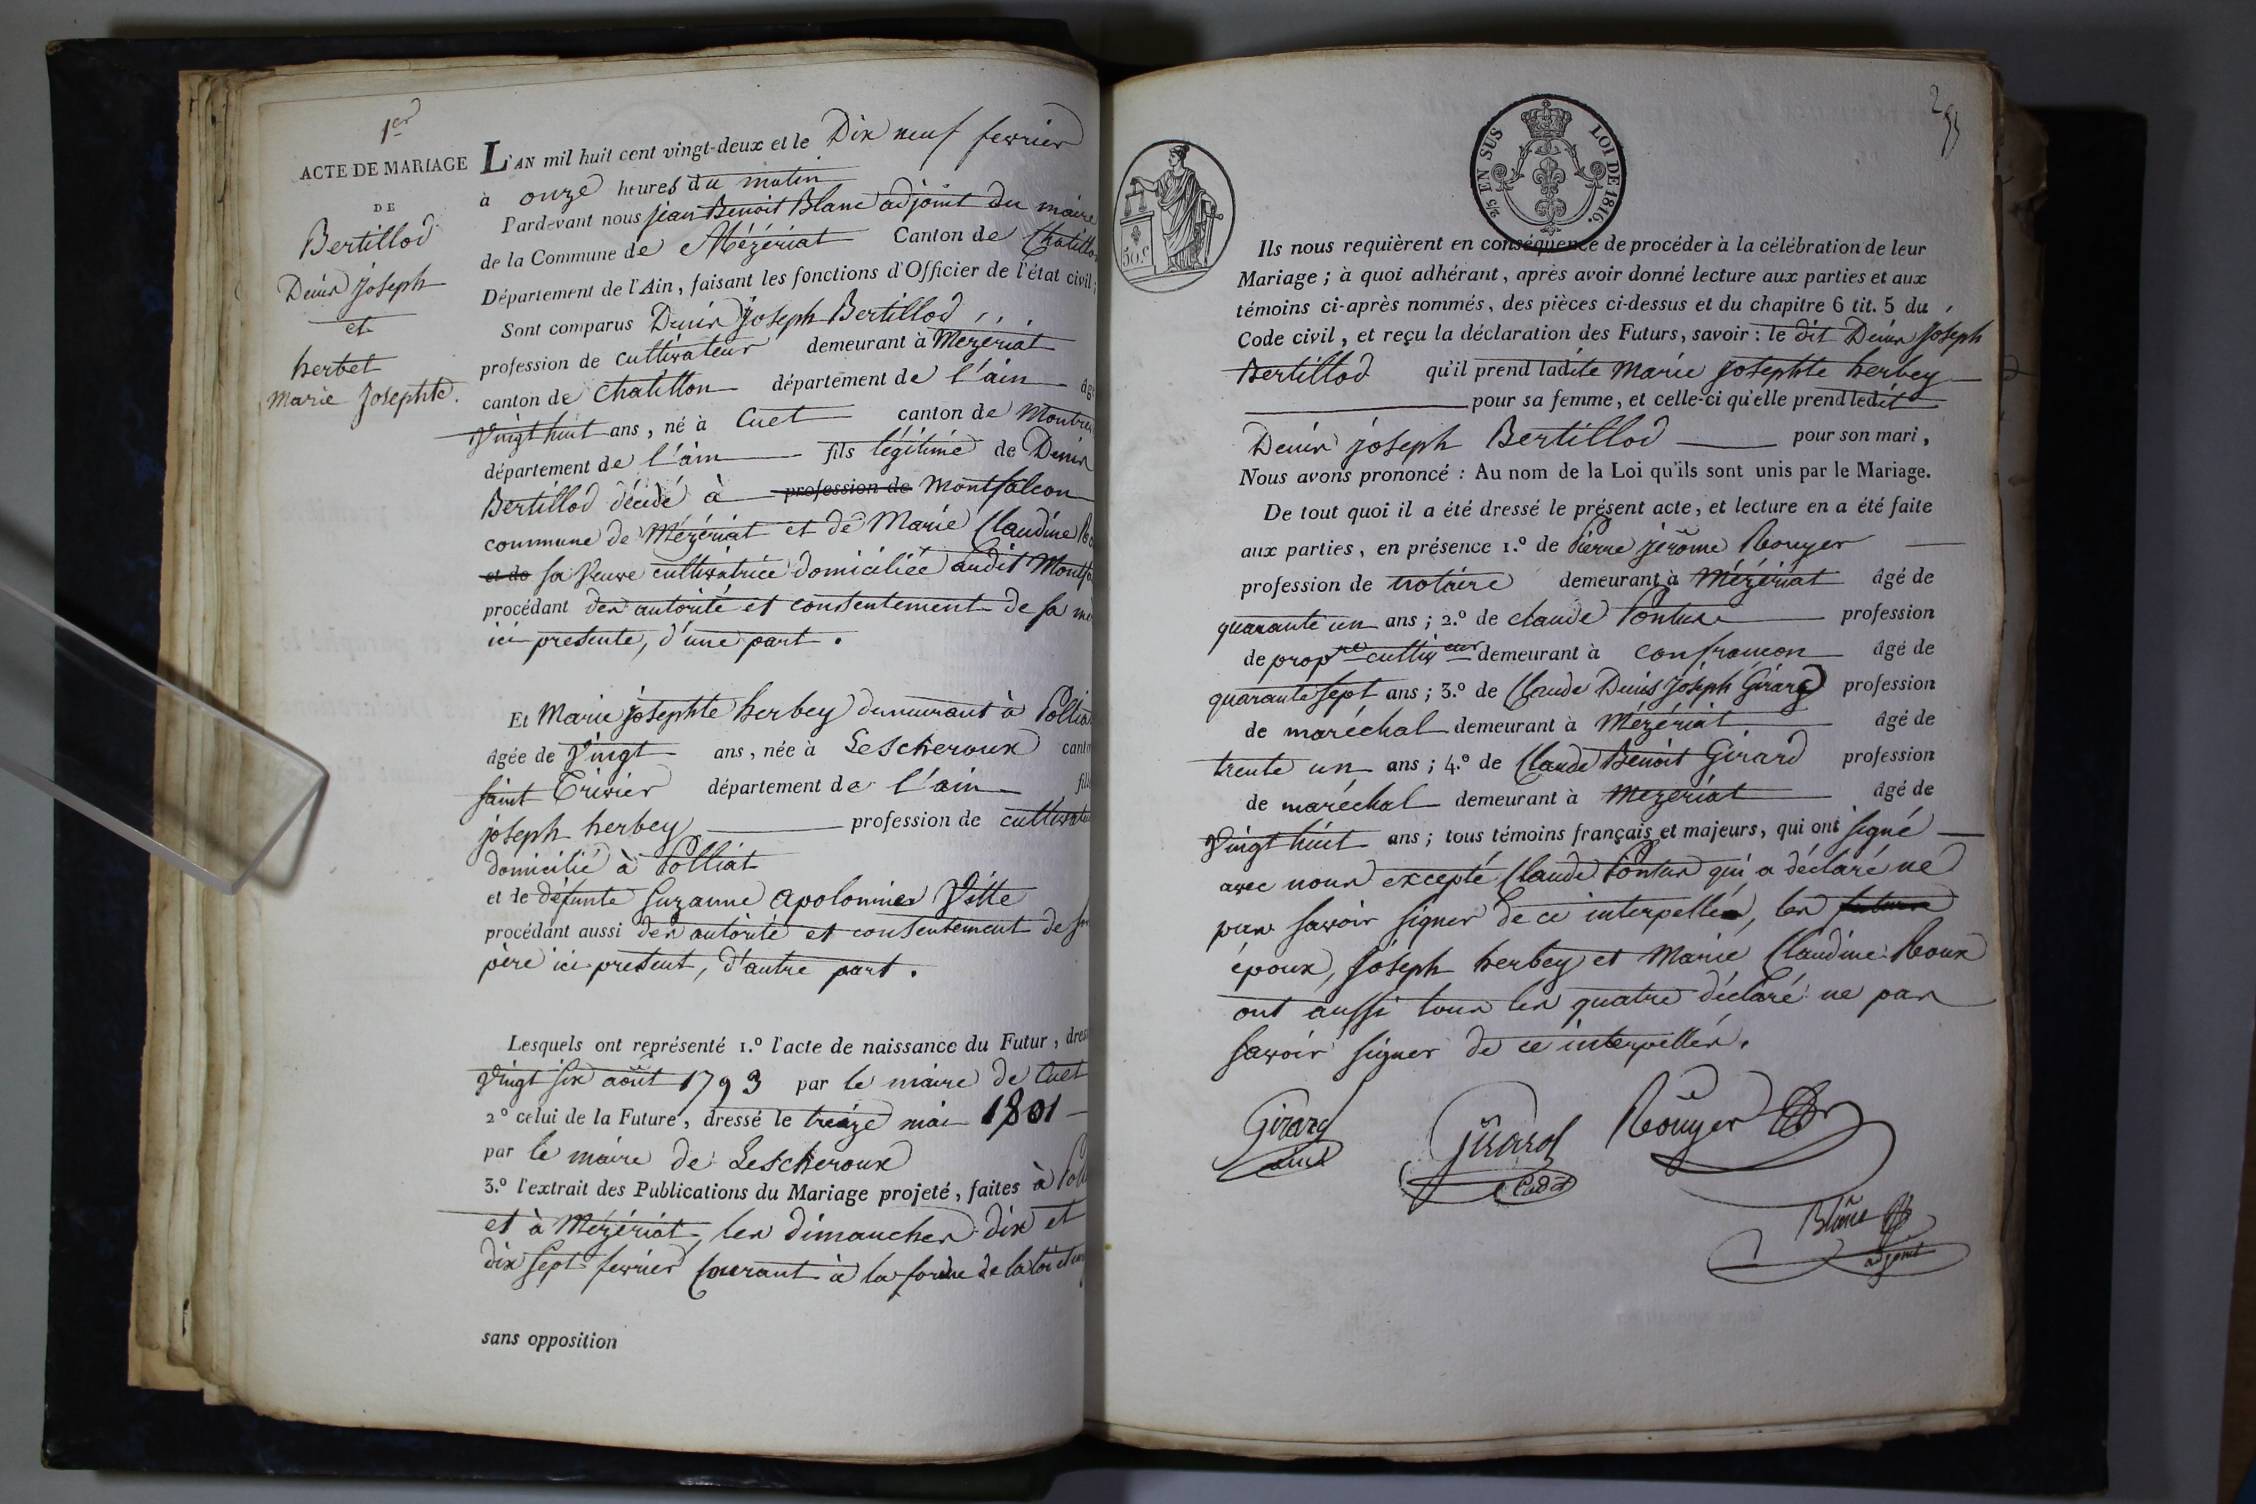 1er
ACTE DE MARIAGE
DE
Bertillod
Denis joseph
et
herbet
marie Josephte.
L'AN mil huit cent vingt-deux et le Dix neuf fevrier
à onze heures du matin
Pardevant nous jean Benoit Blanc adjoint du maire
de la Commune de Mézériat Canton de Chatillon
Département de l'Ain, faisant les fonctions d'Officier de l'état civil;
Sont comparus Denis Joseph Bertillod
profession de cultivateur demeurant à Mézériat
canton de Chatillon département de l'ain âgé
vingt huit ans, né à Cuet canton de Montre
département de l'ain fils légitime de Denis
Bertillod décédé à profession de Montfalcon
commune de Mézériat et de Marie Claudine Ro
et de sa veuve cultivatrice domiciliée audit Montfa
procédant des autorité et consentement de sa me
ici presente, d'une part.
Et Marie josephte herbey demeurant à Pollia
âgée de Vingt ans, née à Lescheroux canto
saint Trivier département de l'ain fill
joseph herbey profession de cultivateu
domicilié à Polliat
et de défunte Suzanne apolonier Vitte
procédant aussi des autorité et consentement de son
père ici present, d'autre part.
Lesquels ont représenté 1.º l'acte de naissance du Futur, dres
Vingt six août 1793 par le maire de Cuet
2º celui de la Future, dressé le treize mai 1801
par le maire de Lescheroux
3.º l'extrait des Publications du Mariage projeté, faites à Poll
et à Mézériat, les dimanches dix et
dix sept fevrier courant à la forme de la loi et
sans opposition
50 C
2/5 EN SUS LOI DE 1816.
Ils nous requièrent en conséquence de procéder à la célébration de leur
Mariage; à quoi adhérant, après avoir donné lecture aux parties et aux
témoins ci-après nommés, des pièces ci-dessus et du chapitre 6 tit. 5 du
Code civil, et reçu la déclaration des Futurs, savoir: le dit Denis Joseph
Bertillod qu'il prend ladite Marie Josephte herbey
pour sa femme, et celle-ci qu'elle prend ledit
Denis joseph Bertillod pour son mari,
Nous avons prononcé : Au nom de la Loi qu'ils sont unis par le Mariage.
De tout quoi il a été dressé le présent acte, et lecture en a été faite
aux parties, en présence 1.º de Pierre jerôme Rouyer
profession de notaire demeurant à Mézériat âgé de
quarante un ans; 2.º de claude Pontus profession
de propre cultiveur demeurant à confrançon âgé de
quarante sept ans; 3.º de Claude Denis Joseph Girard profession
de maréchal demeurant à Mézériat âgé de
trente un ans; 4.º de Claude Benoit Girard profession
de maréchal demeurant à Mezeriat âgé de
vingt huit ans; tous témoins français et majeurs, qui ont signé
avec nous excepté Claude Pontus qui a déclaré ne
pas savoir signer de ce interpellé, les futurs
époux, Joseph herbey et Marie Claudine Roux
ont aussi tous les quatre déclaré ne pas
savoir signer de ce interpellés.
Girard
ainé
Girard
Cadet
Rouyer
Blanc
adjoint